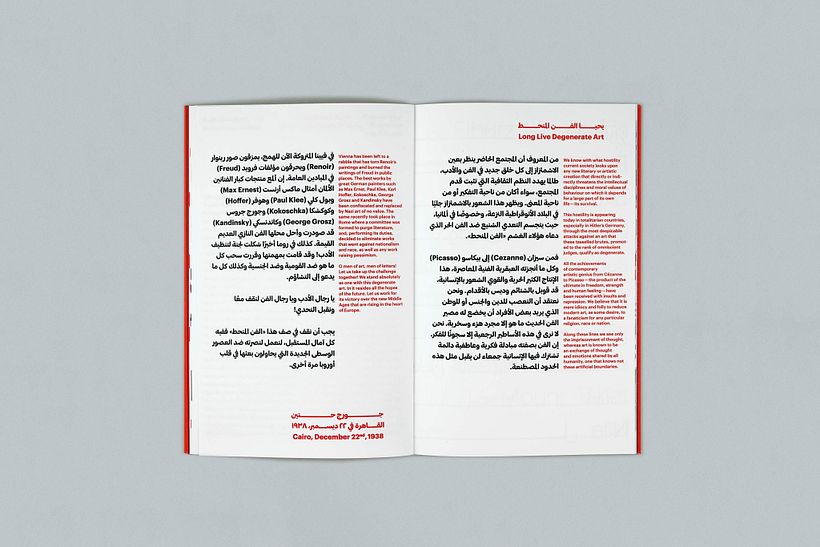 يحيـــا الفـــــن المنحـــــط
Long Live Degenerate Art
من المعروف أن المجتمع الحاضر ينظر بعين
الاشمئزاز إلى كل خلق جديد في الفن والأدب،
طالما يهدد النظم الثقافية التي تثبت قدم
المجتمع، سواء أكان من ناحية التفكير أو من
ناحية المعنى. ويظهر هذا الشعور بالاشمئزاز جليًا
في البلاد الأتوقراطية النزعة، وخصوصًا في ألمانيا،
حيث يتجسم التعدي الشنيع ضد الفن الحر الذي
دعاه هؤلاء الغشم «الفن المنحط».
فمن سيزان (Cezanne) إلى بيكاسو (Picasso)
وكل ما أنجزته العبقرية الفنية المعاصرة، هذا
الإنتاج الكثير الحرية والقوي الشعور بالإنسانية،
قد قوبل بالشتائم وديس بالأقدام. ونحن
نعتقد أن التعصب للدين والجنس أو للوطن
الذي يريد بعض الأفراد أن يخضع له مصير
الفن الحديث ما هو إلا مجرد هزء وسخرية. نحن
لا نرى في هذه الأساطير الرجعية إلا سجونًا للفكر.
إن الفن بصفته مبادلة فكرية وعاطفية دائمة
تشترك فيها الإنسانية جمعاء لن يقبل مثل هذه
الحدود المصطنعة.
We know with what hostility
current society looks upon
any new literary or artistic
creation that directly or indi-
rectly threatens the intellectual
disciplines and moral values of
behaviour on which it depends
for a large part of its own
life – its survival.
This hostility is appearing
today in totalitarian countries,
especially in Hitler's Germany,
through the most despicable
attacks against an art that
these tasselled brutes, promot-
ed to the rank of omniscient
judges, qualify as degenerate.
All the achievements
of contemporary
artistic genius from Cézanne
to Picasso – the product of the
ultimate in freedom, strength
and human feeling – have
been received with insults and
repression. We believe that it is
mere idiocy and folly to reduce
modern art, as some desire, to
a fanaticism for any particular
religion, race or nation.
Along these lines we see only
the imprisonment of thought,
whereas art is known to be
an exchange of thought
and emotions shared by all
humanity, one that knows not
these artificial boundaries.
في فيينا المتروكة الآن للهمج، يمزقون صور رينوار
(Renoir) ويحرقون مؤلفات فرويد (Freud)
في الميادين العامة. إن ألمع منتجات كبار الفنانين
الألمان أمثال ماكس أرنست (Max Ernest)
وبول كلي (Paul Klee) وهوفر (Hoffer)
وكوكشكا (Kokoschka) وجورج جروس
(George Grosz) وكاندنسكي (Kandinsky)
قد صودرت وأحل محلها الفن النازي العديم
القيمة. كذلك في روما أخيرًا شكلت لجنة لتنظيف
الأدب! وقد قامت بمهمتها وقررت سحب كل
ما هو ضد القومية وضد الجنسية وكذلك كل ما
يدعو إلى التشاؤم.
يا رجال الأدب ويا رجال الفن لنقف معًا
ونقبل التحدي!
يجب أن نقف في صف هذا «الفن المنحط» ففيه
كل آمال المستقبل، لنعمل لنصرته ضد العصور
الوسطى الجديدة التي يحاولون بعثها في قلب
أوروبا مرة أخرى.
Vienna has been left to a
rabble that has torn Renoir's
paintings and burned the
writings of Freud in public
places. The best works by
great German painters such
as Max Ernst, Paul Klee, Karl
Hoffer, Kokoschka, George
Grosz and Kandinsky have
been confiscated and replaced
by Nazi art of no value. The
same recently took place in
Rome where a committee was
formed to purge literature,
and, performing its duties,
decided to eliminate works
that went against nationalism
and race, as well as any work
raising pessimism.
O men of art, men of letters!
Let us take up the challenge
together! We stand absolutely
as one with this degenerate
art. In it resides all the hopes
of the future. Let us work for
its victory over the new Middle
Ages that are rising in the heart
of Europe.
جـــــورج حـــــنين
القـــاهرة في ٢٢ ديســـمبر، ١٩٣٨
Cairo, December 22nd, 1938